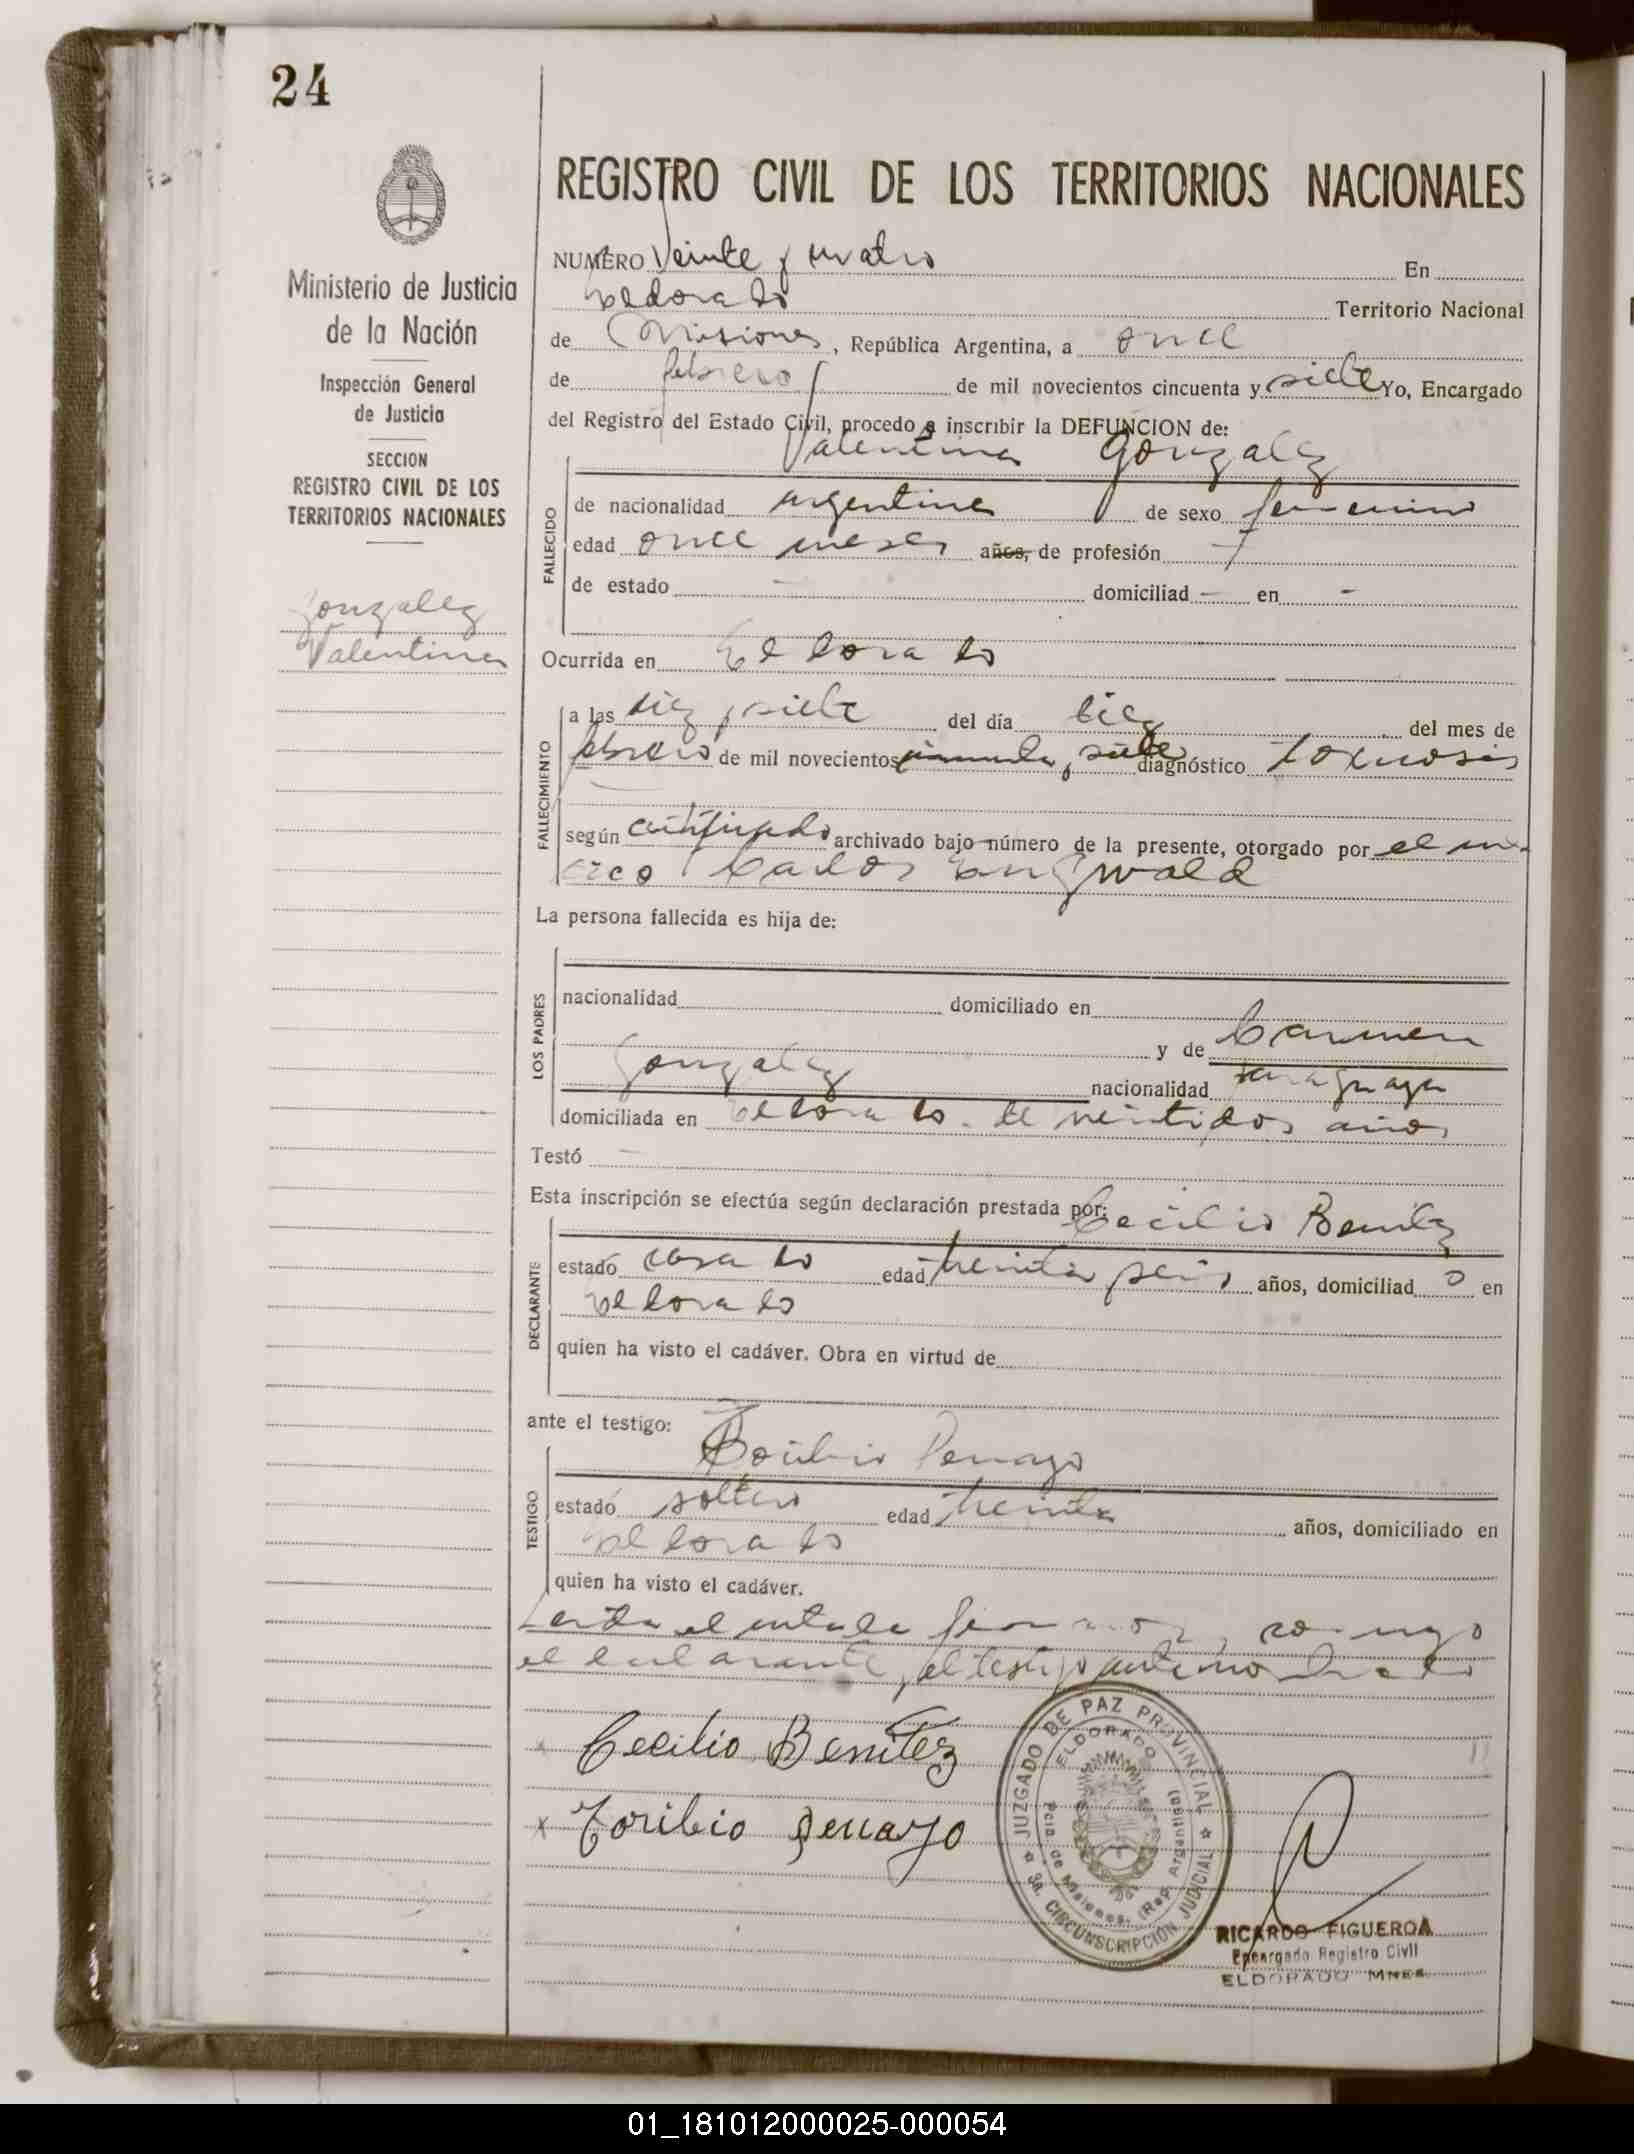 24
Ministerio de Justicia
de la Nación
Inspección General
de Justicia
SECCION
REGISTRO CIVIL DE LOS
TERRITORIOS NACIONALES
Gonzalez
Valentina
REGISTRO CIVIL DE LOS TERRITORIOS NACIONALES
NUMERO Veinte y cuatro En
Eldorado Territorio Nacional
de Misiones, República Argentina, a once
de febrero de mil novecientos cincuenta y siete Yo, Encargado
del Registro del Estado Civil, procedo a inscribir la DEFUNCION de:
Valentina Gonzalez
FALLECIDO
de nacionalidad argentina de sexo femenino
edad once meses años, de profesión -
de estado - domiciliad - en -
Ocurrida en Eldorado
FALLECIMIENTO
a las diez y siete del día diez del mes de
febrero de mil novecientos cincuenta y siete diagnóstico toxicosis
según certificado archivado bajo número de la presente, otorgado por el mé-
dico Carlos
La persona fallecida es hija de:
LOS PADRES
nacionalidad domiciliado en
y de Carmen
Gonzalez nacionalidad paraguaya
domiciliada en Eldorado de veintidos años
Testó -
Esta inscripción se efectúa según declaración prestada por: Cecilio Benitez
DECLARANTE
estado casado edad treinta y seis años, domiciliad o en
Eldorado
quien ha visto el cadáver. Obra en virtud de
ante el testigo:
Toribio Penayo
TESTIGO
estado soltero edad treinta años, domiciliado en
Eldorado
quien ha visto el cadáver.
Leida el acta la firman conmigo
el declarante y el testigo
x Cecilio Benitez
x Toribio Penayo
JUZGADO DE PAZ PROVINCIAL
3A. CIRCUNSCRIPCIÓN JUDICIAL
ELDORADO
Pcia. de Misiones. (Rep. Argentina)
RICARDO FIGUEROA
Encargado Registro Civil
ELDORADO MNES.
01_181012000025-000054